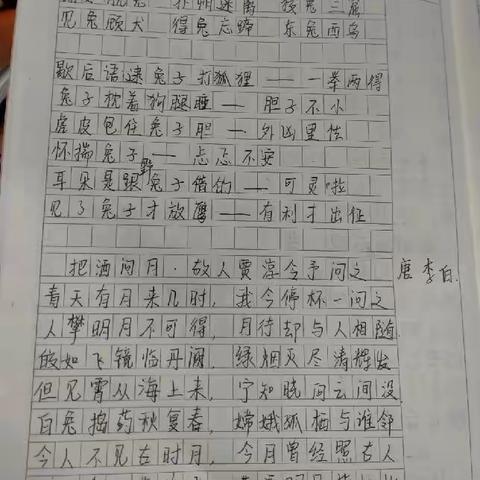 扑朔迷离 狡兔三窟
见兔顾犬 得兔忘蹄 东兔西乌
歇后语逮兔子打狐狸——一举两得
兔子枕着狗腿睡——胆子不小
虎皮包住兔子胆——外凶里怯
怀揣兔子——忐忑不安
耳朵是跟野兔子借的——可灵啦
见了兔子才放鹰——有利才出征
把酒问月·故人贾淳令予问之 唐李白.
青天有月来几时，我今停杯一问之
人攀明月不可得，月待却与人相随.
皎如飞镜临丹阙，绿烟灭尽清辉发
但见宵从海上来，宁知晓向云间没
白兔捣药秋复春，嫦娥孤栖与谁邻
今人不见古时月，今月曾经照古人